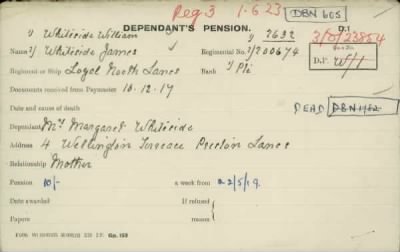 Reg 3 1.6.23 DBN 605
DEPENDANT'S PENSION. D.1
1) Whiteside William 1) 7692 3/D/23854
Name 2) Whiteside James Regimental No. 2) 200674
Regiment or Ship Loyal North Lancs Rank 1) Pte D.P. W/1
Documents received from Paymaster 10.12.17
Date and cause of death
DEAD DBN
Dependant Mrs Margaret Whiteside
Address 4 Wellington Terrace Preston Lancs
Relationship Mother
Pension 10/- a week from 22/5/19.
Date awarded If refused
Papers reason